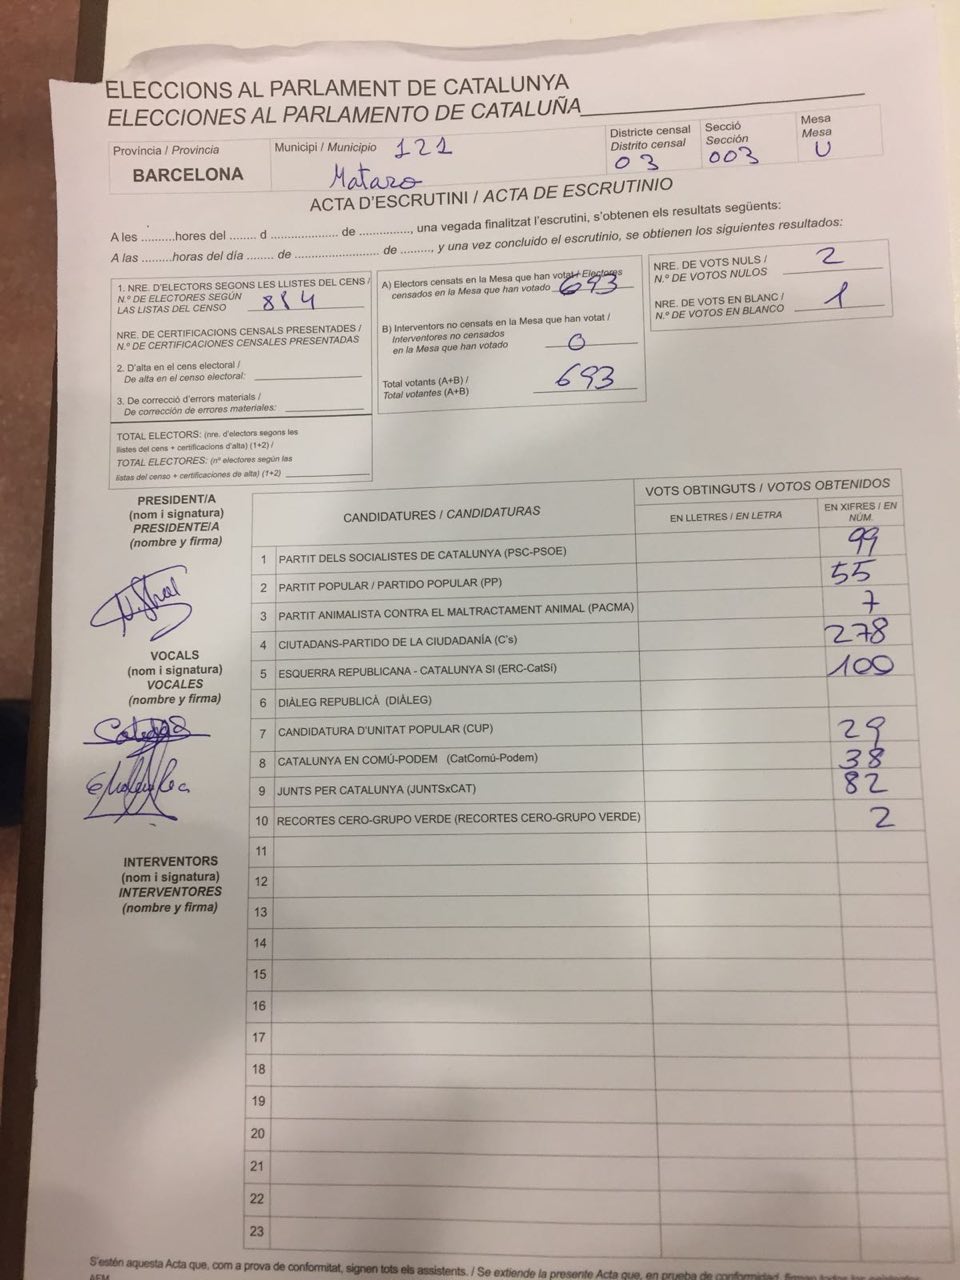 ELECCIONS AL PARLAMENT DE CATALUNYA
ELECCIONES AL PARLAMENTO DE CATALUÑA
Provincia / Provincia
BARCELONA
Municipi / Municipio 121
Mataro
Districte censal
Distrito censal
03
Secció
Sección
003
Mesa
Mesa
U
ACTA D'ESCRUTINI / ACTA DE ESCRUTINIO
A les ..........hores del ........ d ......................... de ..............., una vegada finalitzat l'escrutini, s'obtenen els resultats següents:
A las .........horas del día ........ de ......................... de .........., y una vez concluido el escrutinio, se obtienen los siguientes resultados:
1. NRE. D'ELECTORS SEGONS LES LLISTES DEL CENS /
N.º DE ELECTORES SEGÚN
LAS LISTAS DEL CENSO 884
NRE. DE CERTIFICACIONS CENSALS PRESENTADES /
N.º DE CERTIFICACIONES CENSALES PRESENTADAS
2. D'alta en el cens electoral /
De alta en el censo electoral:
3. De correcció d'errors materials /
De corrección de errores materiales:
TOTAL ELECTORS: (nre. d'electors segons les
llistes del cens + certificacions d'alta) (1+2) /
TOTAL ELECTORES: (nº electores según las
listas del censo + certificaciones de alta) (1+2)
A) Electors censats en la Mesa que han votat / Electores
censados en la Mesa que han votado 693
B) Interventors no censats en la Mesa que han votat /
Interventores no censados
en la Mesa que han votado 0
Total votants (A+B) /
Total votantes (A+B) 693
NRE. DE VOTS NULS /
N.º DE VOTOS NULOS 2
NRE. DE VOTS EN BLANC /
N.º DE VOTOS EN BLANCO 1
PRESIDENT/A
(nom i signatura)
PRESIDENTE/A
(nombre y firma)
VOCALS
(nom i signatura)
VOCALES
(nombre y firma)
INTERVENTORS
(nom i signatura)
INTERVENTORES
(nombre y firma)
CANDIDATURES / CANDIDATURAS
VOTS OBTINGUTS / VOTOS OBTENIDOS
EN LLETRES / EN LETRA
EN XIFRES / EN
NÚM.
1 PARTIT DELS SOCIALISTES DE CATALUNYA (PSC-PSOE) 99
2 PARTIT POPULAR / PARTIDO POPULAR (PP) 55
3 PARTIT ANIMALISTA CONTRA EL MALTRACTAMENT ANIMAL (PACMA) 7
4 CIUTADANS-PARTIDO DE LA CIUDADANÍA (C's) 278
5 ESQUERRA REPUBLICANA - CATALUNYA SI (ERC-CatSí) 100
6 DIÀLEG REPUBLICÀ (DIÀLEG)
7 CANDIDATURA D'UNITAT POPULAR (CUP) 29
8 CATALUNYA EN COMÚ-PODEM (CatComú-Podem) 38
9 JUNTS PER CATALUNYA (JUNTSxCAT) 82
10 RECORTES CERO-GRUPO VERDE (RECORTES CERO-GRUPO VERDE) 2
11
12
13
14
15
16
17
18
19
20
21
22
23
S'estén aquesta Acta que, com a prova de conformitat, signen tots els assistents. / Se extiende la presente Acta que, en prueba de conformidad, firman